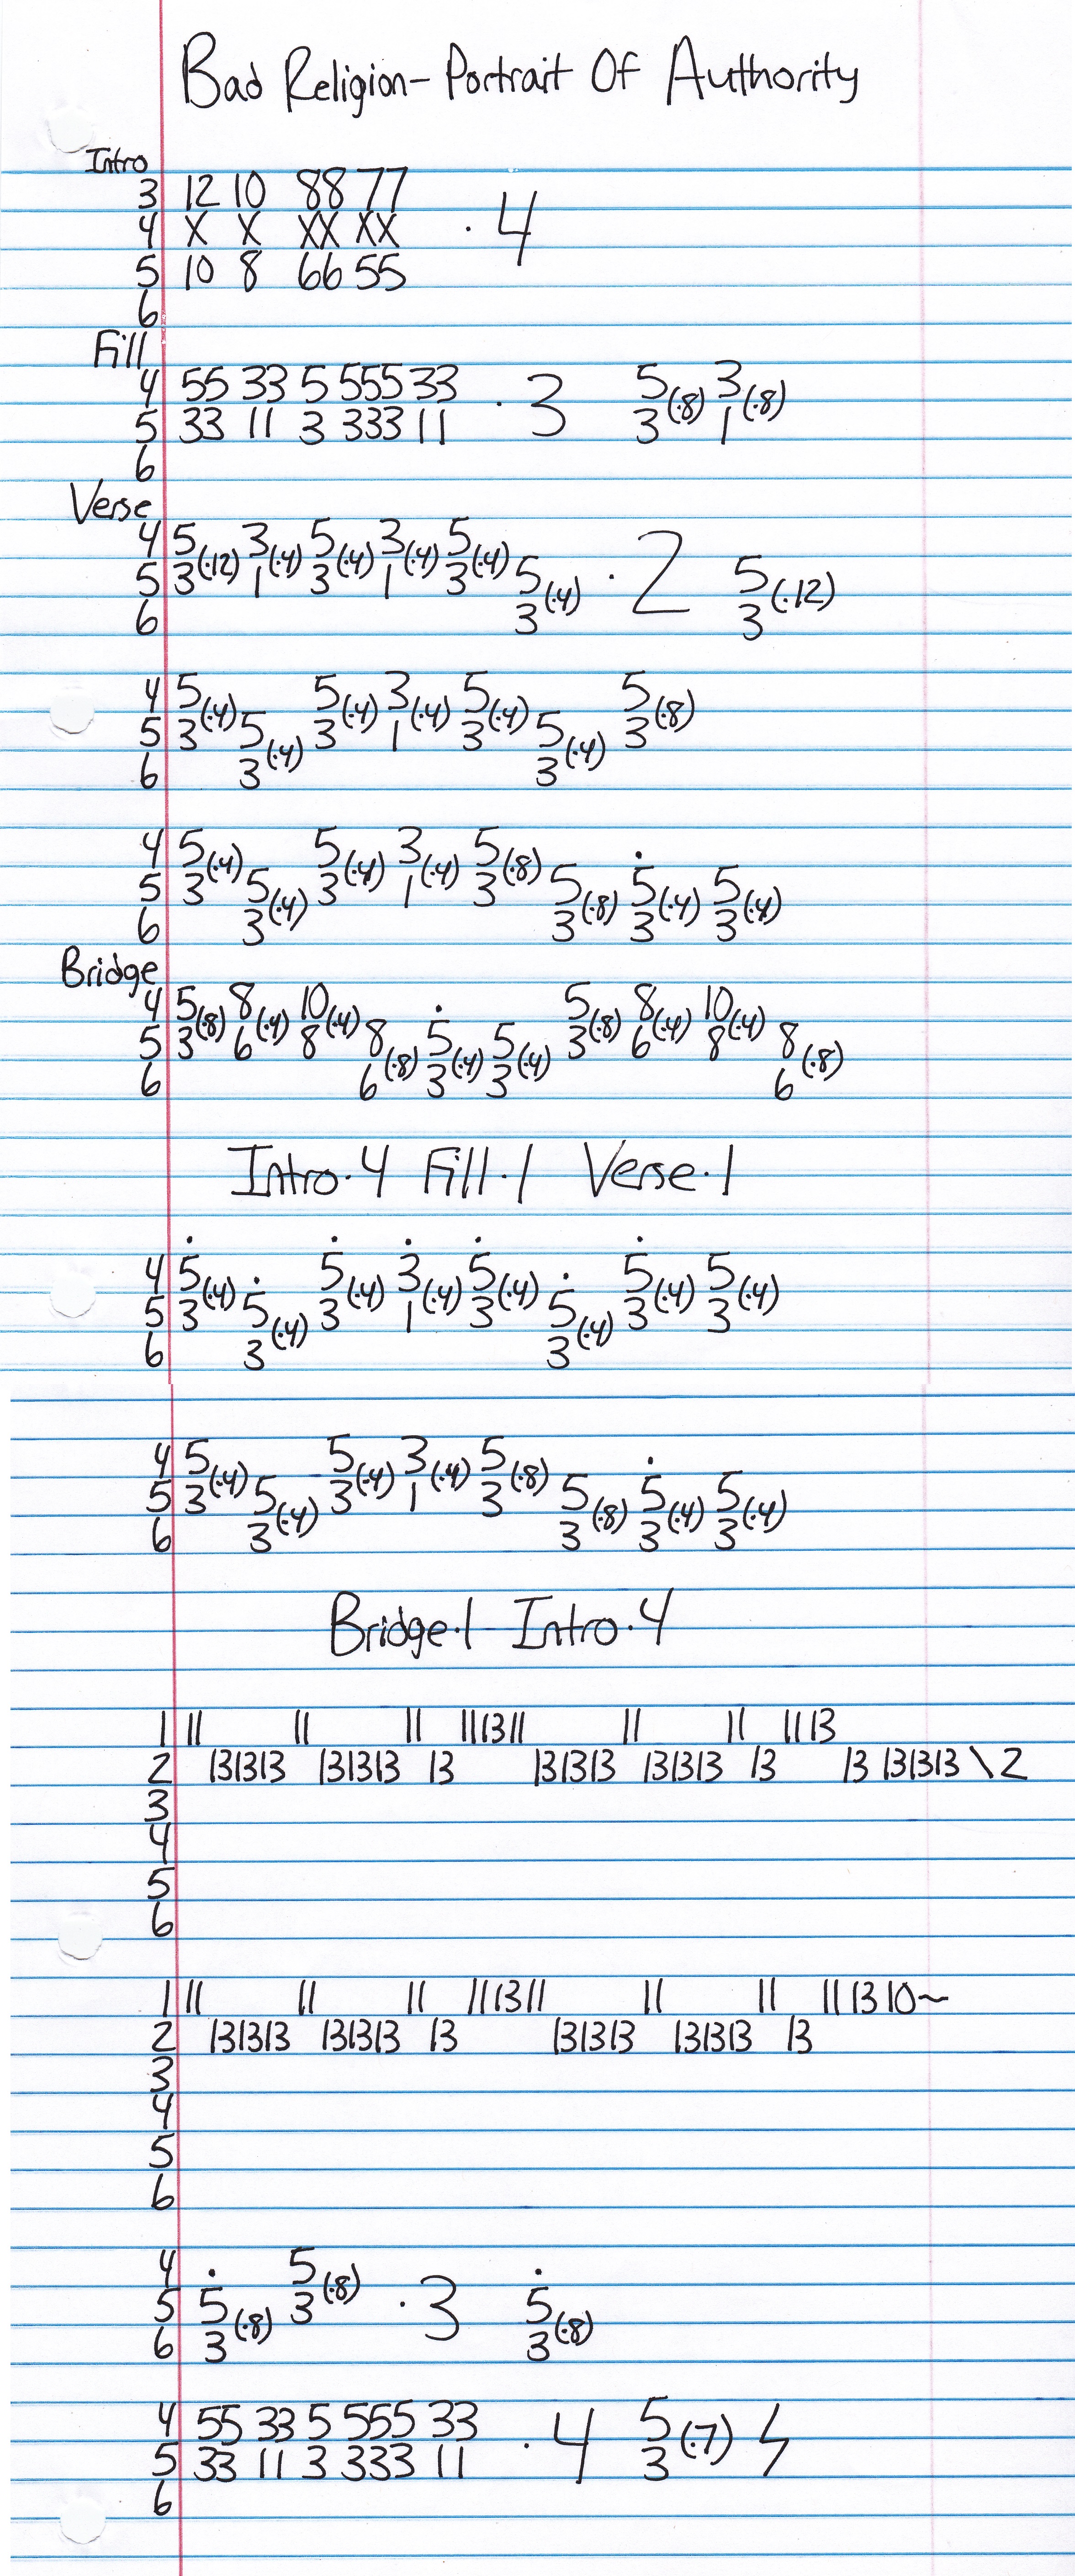 Bad Religion - Portrait Of Authority
Intro
3 12 10 88 77
4 X X XX XX · 4
5 10 8 66 55
6
Fill
4 55 33 5 555 33 · 3 5 3
5 33 11 3 333 11 3(·8) 1(·8)
6
Verse
4 5 3 5 3 5
5 3(·12) 1(·4) 3(·4) 1(·4) 3(·4) 5 · 2 5
6 3(·4) 3(·12)
4 5 5 3 5 5
5 3(·4) 5 3(·4) 1(·4) 3(·4) 5 3(·8)
6 3(·4) 3(·4)
4 5 5 3 5
5 3(·4) 5 3(·4) 1(·4) 3(·8) 5 5̇ 5
6 3(·4) 3(·8) 3(·4) 3(·4)
Bridge
4 5 8 10 5 8 10
5 3(·8) 6(·4) 8(·4) 8 5̇ 5 3(·8) 6(·4) 8(·4) 8
6 6(·8) 3(·4) 3(·4) 6(·8)
Intro·4 Fill·1 Verse·1
4 5̇ 5̇ 3̇ 5̇ 5̇ 5
5 3(·4) 5̇ 3(·4) 1(·4) 3(·4) 5̇ 3(·4) 3(·4)
6 3(·4) 3(·4)
4 5 5 3 5
5 3(·4) 5 3(·4) 1(·4) 3(·8) 5 5̇ 5
6 3(·4) 3(·8) 3(·4) 3(·4)
Bridge·1 Intro·4
1 11 11 11 111311 11 11 1113
2 131313 131313 13 131313 131313 13 13 131313 \2
3
4
5
6
1 11 11 11 111311 11 11 11 13 10~
2 131313 131313 13 131313 131313 13
3
4
5
6
4 5
5 5̇ 3(·8) · 3 5̇
6 3(·8) 3(·8)
4 55 33 5 555 33 · 4 5
5 33 11 3 333 11 3(·7)
6